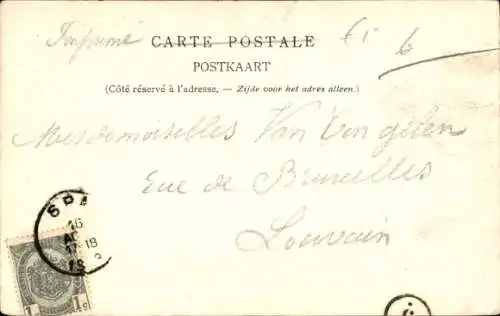 Imprimé
CARTE POSTALE
POSTKAART
(Côté réservé à l'adresse. — Zijde voor het adres alleen.)
6
Mesdemoiselles Van
Rue de Bruxelles
Louvain
SPA
16
18
1c 1c